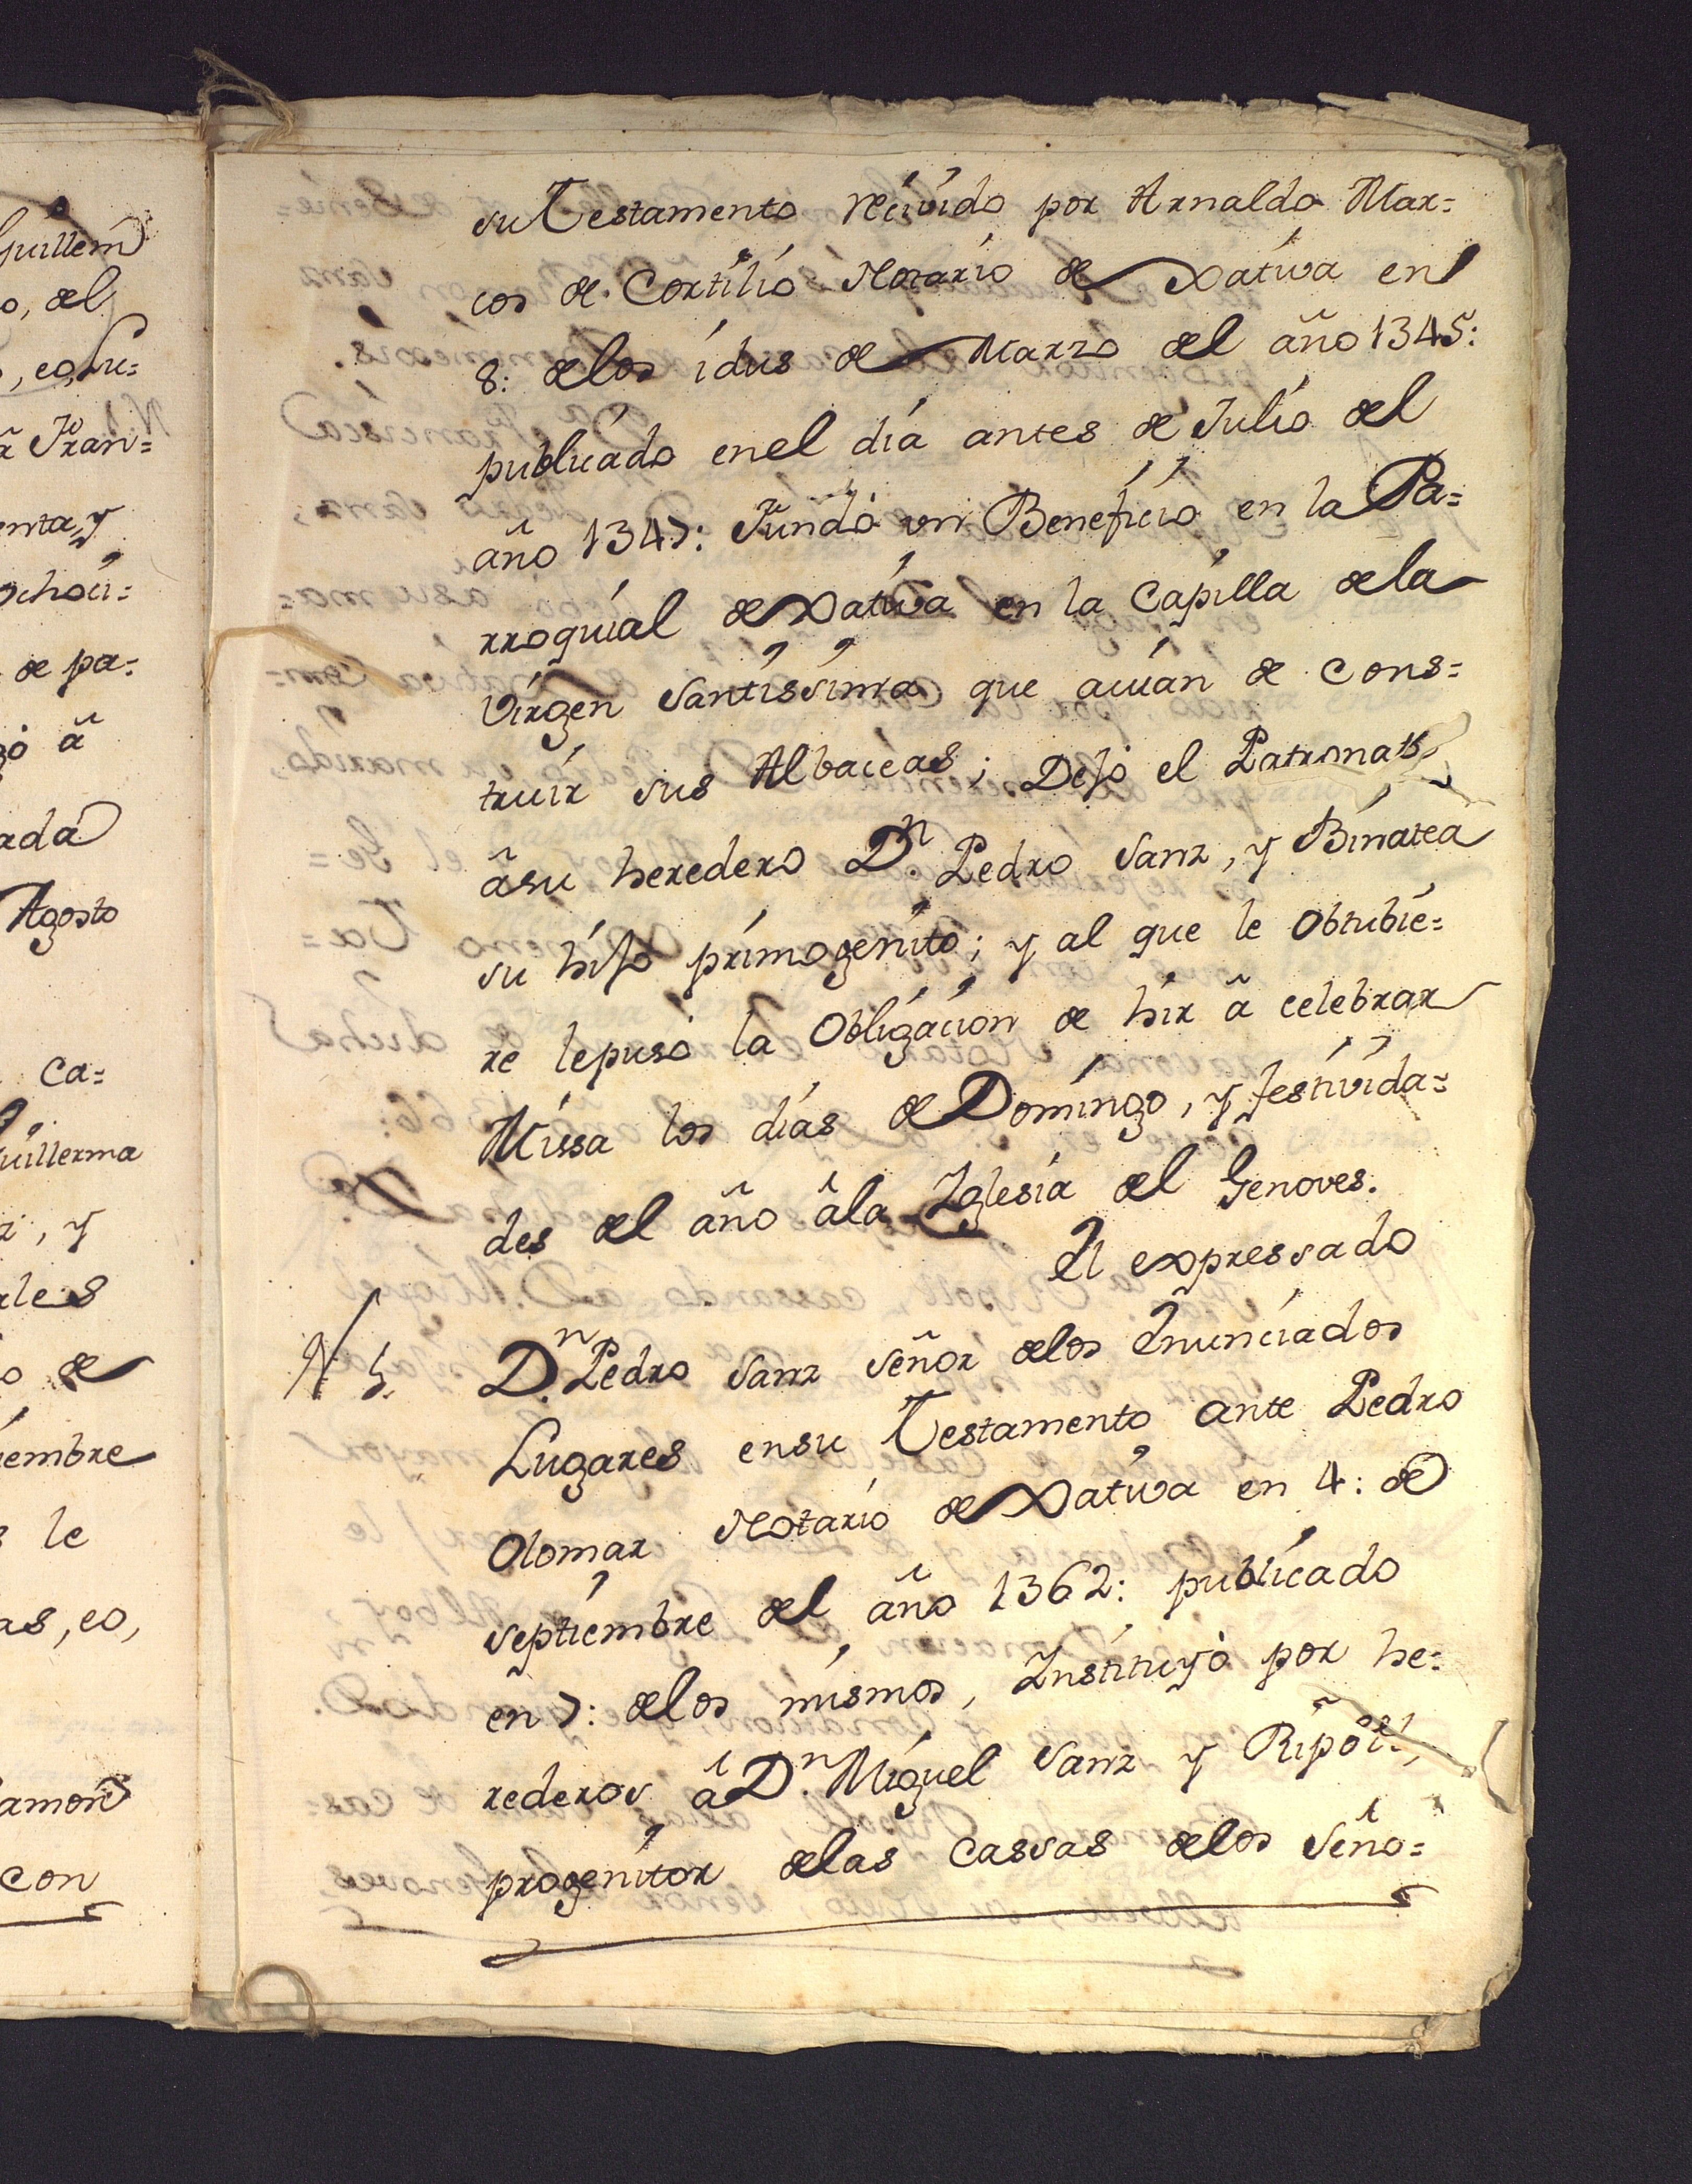 Guillem
o, del
, eo, su=
ã Fran=
enta, y
ochoci=
de pa=
zó ã
rada
Agosto
Ca=
Guillerma
z, y
rles
o de
iembre
s le
as, eo,
amon
con
su Testamento recivido por Arnaldo Mar=
cos de Cortilio Notario de Xativa en
8: delos idus de Marzo del año 1345:
publicado enel dia antes de Julio del
año 1347: Fundó un Beneficio en la Pa=
rroquial de Xativa en la Capilla dela
Virgen Santissima que avian de cons=
truir sus Albaceas; Dejó el Patronato
ãsu heredero Dn. Pedro Sanz, y Binatea
su hijo primogenito; y al que le obtubie=
re lepuso la Obligacion de hir ã celebrar
Missa los dias de Domingo, y festivida=
des del año âla Iglesia del Genoves.
El expressado
N 5. Dn. Pedro Sanz Señor delos Enunciados
Lugares ensu Testamento ante Pedro
Olomar Notario de Xativa en 4: de
Septiembre del año 1362: publicado
en 7: delos mismos, Instituyó por he=
rederos â Dn. Miguel Sanz y Ripoll,
progenitor delas Cassas delos Seño=